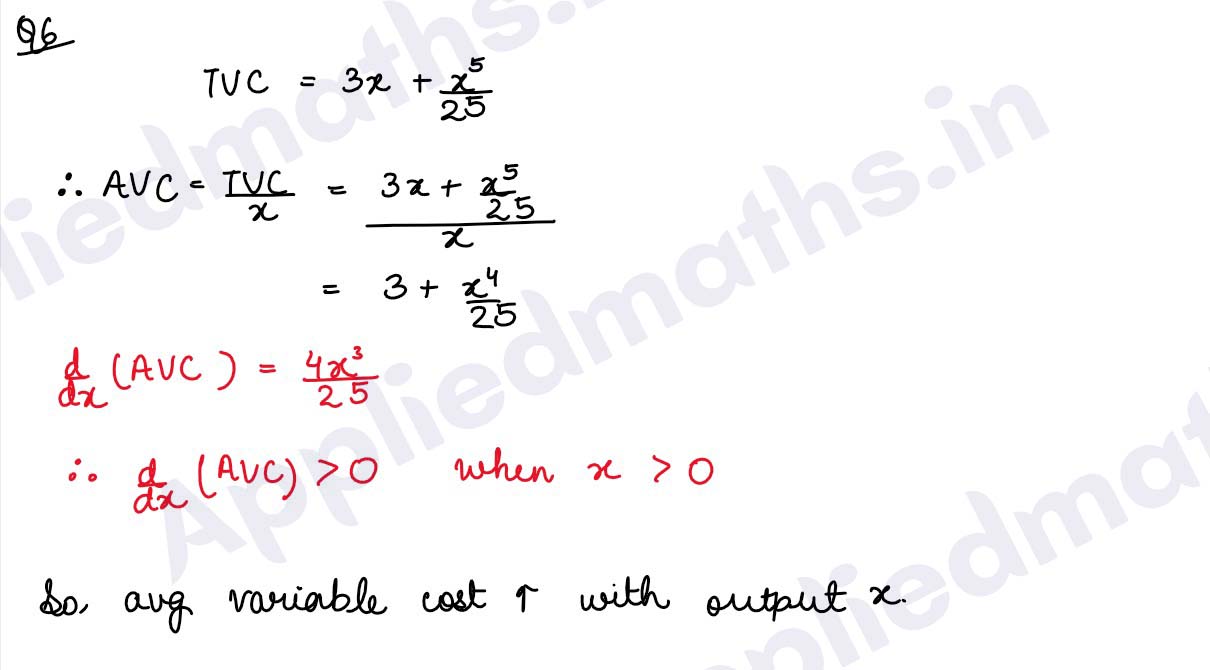 Q6
TVC = 3x + x⁵/25
∴ AVC = TVC/x = (3x + x⁵/25)/x
= 3 + x⁴/25
d/dx (AVC) = 4x³/25
∴ d/dx (AVC) > 0 when x > 0
So, avg variable cost ↑ with output x.
Appliedmaths.in